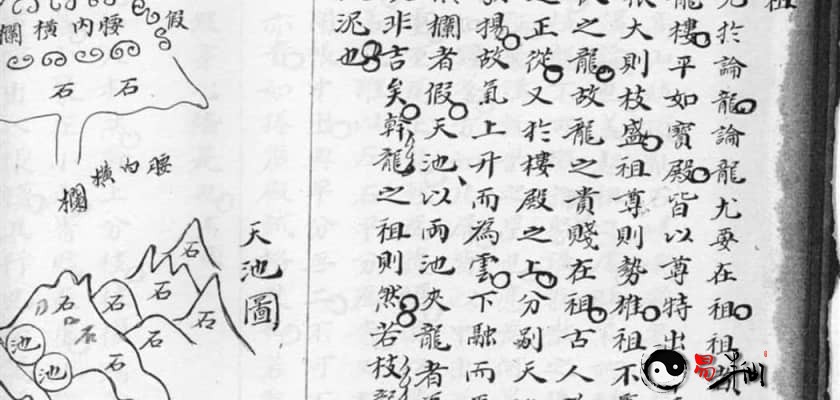 祖
於論龍論龍尤要在祖祖
龍樓平如寶殿皆以尊特出
大則枝盛祖尊則勢雄祖不
之龍故龍之貴賤在祖古人
之正從又於樓殿之上分別天
揚故氣上升而為雲下融而
欄者假天池以两池夾龍者
非吉矣幹龍之祖則然若枝
泥也
天池圖
假腰內橫欄
石
石
腰內橫欄
石
石
石
石
石
石
石
石
池
池
易